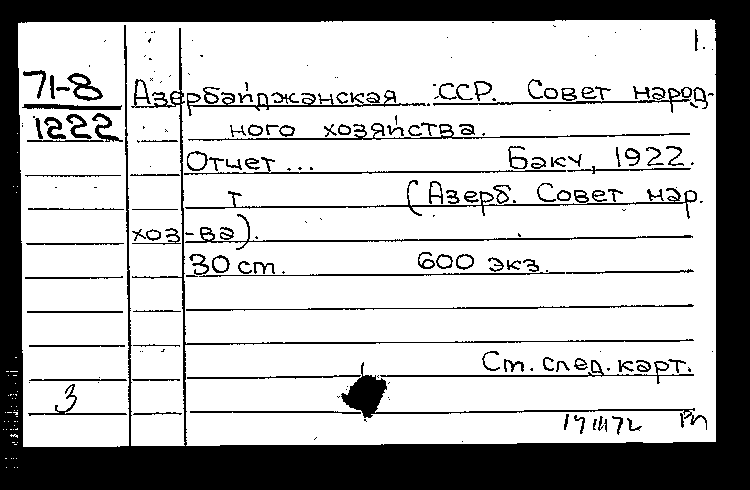 1.
71-8 Азербайджанская ССР. Совет народ-
1222 ного хозяйства.
Отчет... Баку, 1922.
т (Азерб. Совет нар.
хоз-ва).
30 ст. 600 экз.
Ст. след. карт.
3
17 III 72